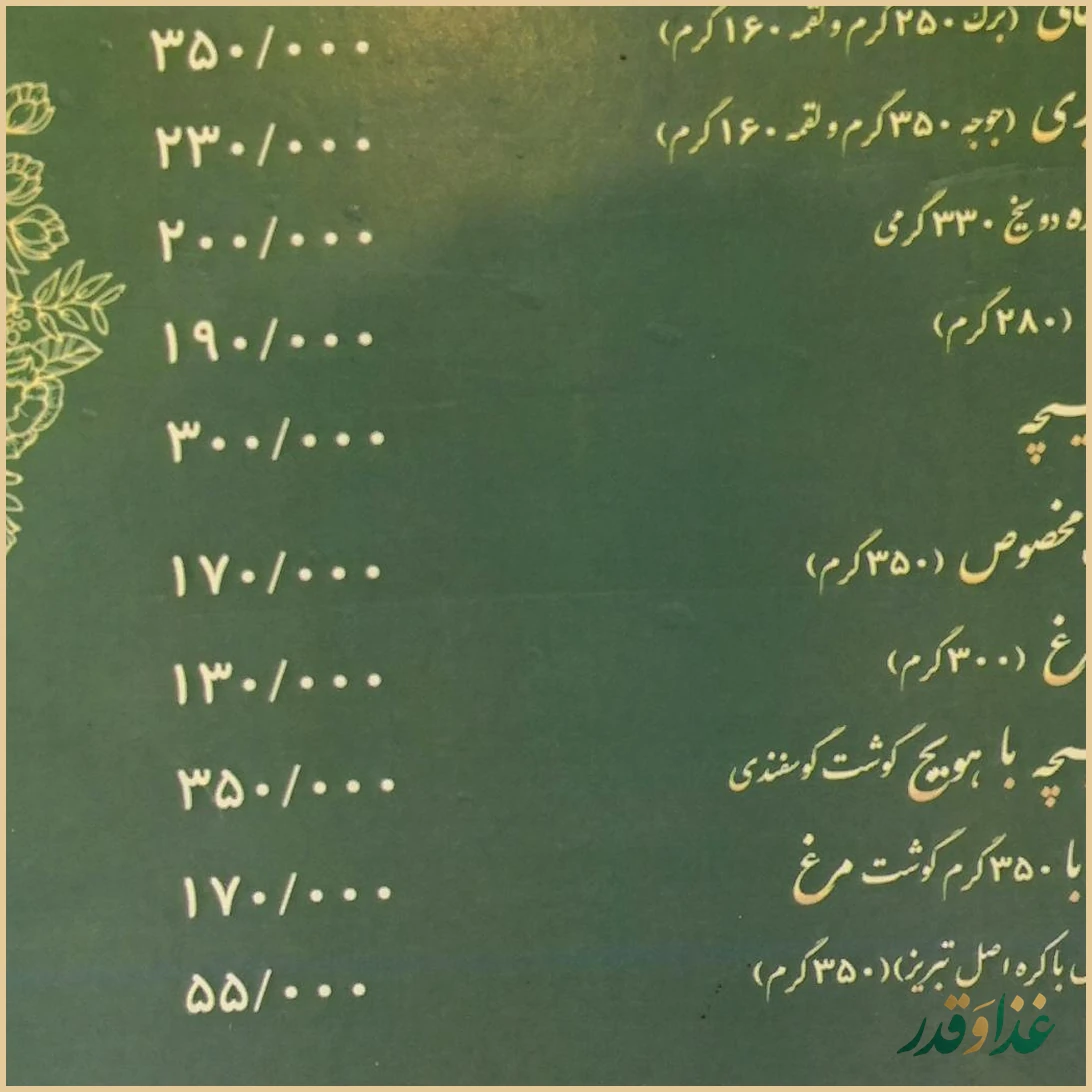 (برگ ۲۵۰ گرم و لقمه ۱۶۰ گرم) ۳۵۰/۰۰۰
(جوجه ۳۵۰ گرم و لقمه ۱۶۰ گرم) ۲۳۰/۰۰۰
دو سیخ ۳۳۰ گرمی ۲۰۰/۰۰۰
(۲۸۰ گرم) ۱۹۰/۰۰۰
۳۰۰/۰۰۰
مخصوص (۳۵۰ گرم) ۱۷۰/۰۰۰
(۳۰۰ گرم) ۱۳۰/۰۰۰
با هویج گوشت گوسفندی ۳۵۰/۰۰۰
با ۳۵۰ گرم گوشت مرغ ۱۷۰/۰۰۰
با کره اصل تبریز) (۳۵۰ گرم) ۵۵/۰۰۰
غذاوقدر